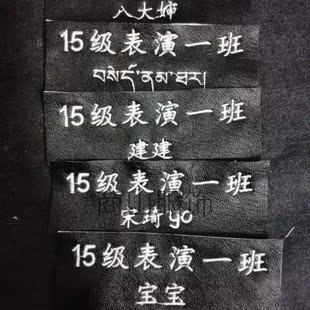 八大婶
15级表演一班
བསོད་ནམས་ཐར།
15级表演一班
建建
15级表演一班
宋琦yo
15级表演一班
宝宝